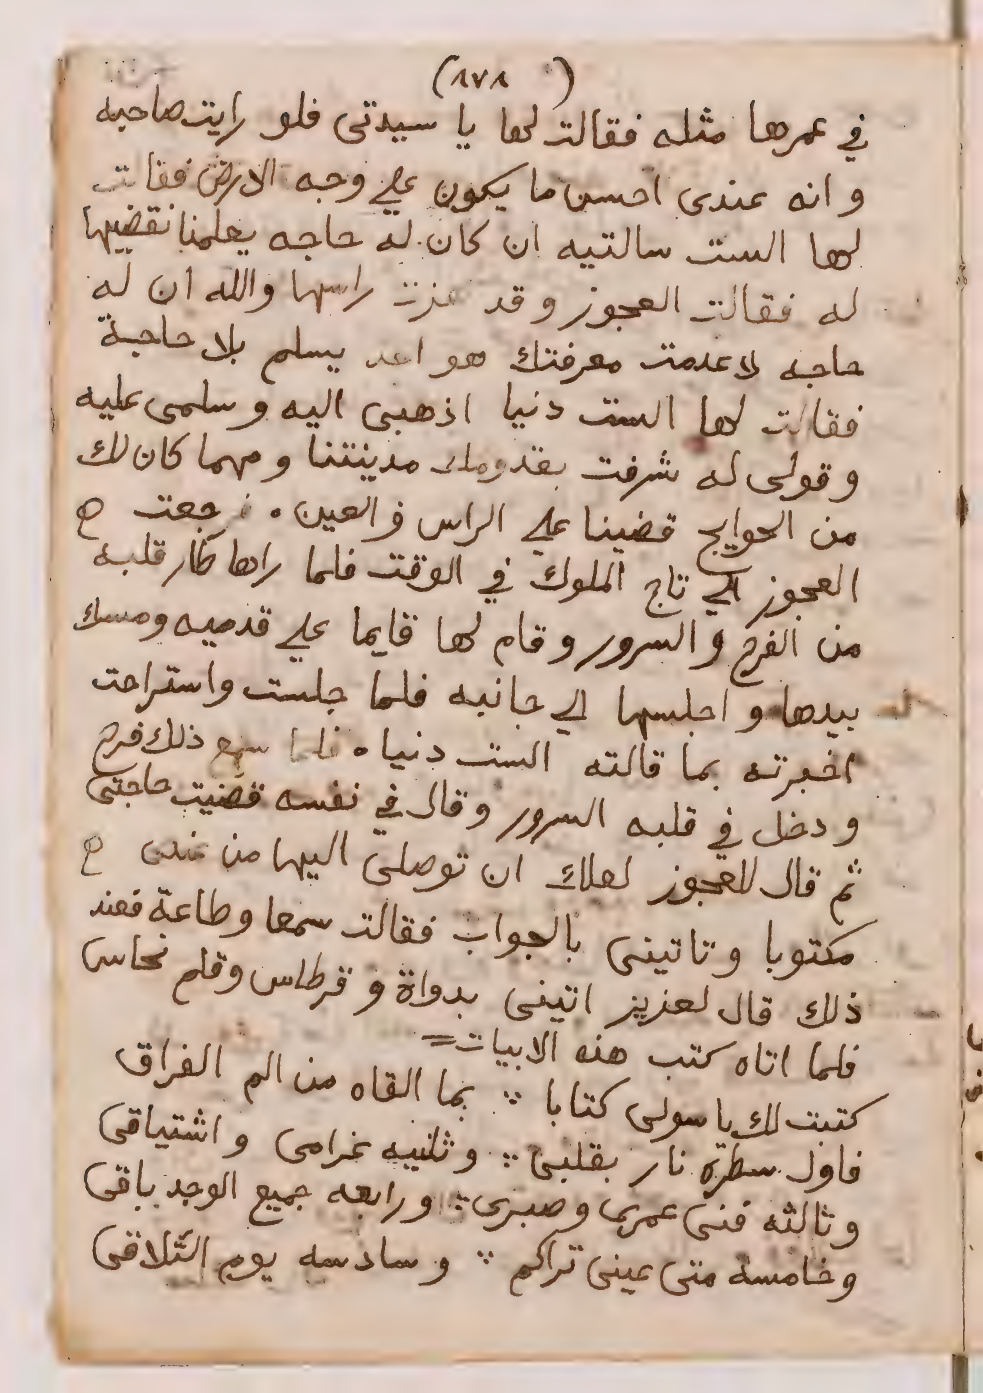 (١٧١)
في عمرها مثله فقالت لها يا سيدتى فلو رايت صاحبه
وانه عندى احسن ما يكون علي وجه الارض فقالت
لها الست سالتيه ان كان له حاجه يعلمنا نقضيها
له فقالت العجوز وقد هزت راسها والله ان له
حاجه لا عدمت معرفتك هو احد يسلم بلا حاجة
فقالت لها الست دنيا اذهبى اليه وسلمى عليه
وقولى له شرفت بقدومك مدينتنا ومهما كان لك
من الحوايج قضينا علي الراس والعين ، فرجعت
العجوز الي تاج الملوك في الوقت فلما راها طار قلبه
من الفرح والسرور وقام لها قايما علي قدميه ومسك
بيدها واجلسها الي جانبه فلما جلست واستراحت
اخبرته بما قالته الست دنيا ، فلما سمع ذلك فرح
ودخل في قلبه السرور وقال في نفسه قضيت حاجتى
ثم قال للعجوز لعلك ان توصلى اليها من عندى
مكتوبا وتاتينى بالجواب فقالت سمعا وطاعة فعند
ذلك قال لعزيز اتينى بدواة وقرطاس وقلم نحاس
فلما اتاه كتب هذه الابيات =
كتبت لك يا سولى كتابا ∴ بما القاه من الم الفراق
فاول سطره نار بقلبى ∴ وثانيه غرامى واشتياقى
وثالثه فنى عمرى وصبرى ∴ ورابعه جميع الوجد باقى
وخامسه متى عينى تراكم ∴ وسادسه يوم التلاقى